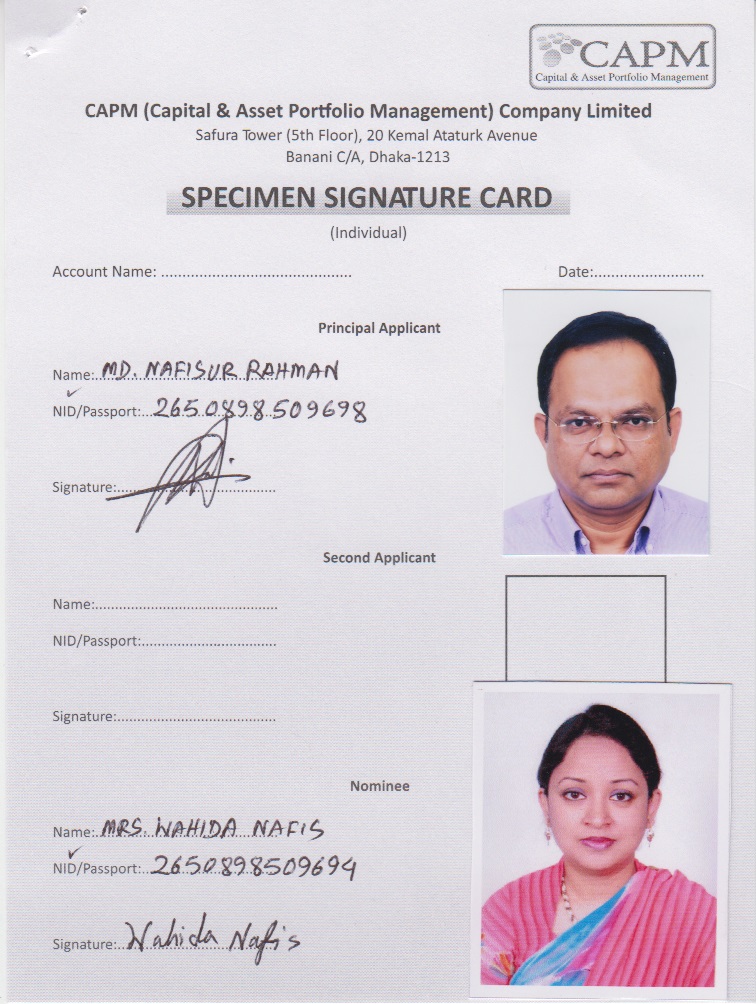 CAPM
Capital & Asset Portfolio Management
CAPM (Capital & Asset Portfolio Management) Company Limited
Safura Tower (5th Floor), 20 Kemal Ataturk Avenue
Banani C/A, Dhaka-1213
SPECIMEN SIGNATURE CARD
(Individual)
Account Name: ............................................ Date:..........................
Principal Applicant
Name: MD. NAFISUR RAHMAN
NID/Passport: 2650898509698
Signature:
Second Applicant
Name:............................................
NID/Passport:.................................
Signature:......................................
Nominee
Name: MRS. WAHIDA NAFIS
NID/Passport: 2650898509694
Signature: Wahida Nafis